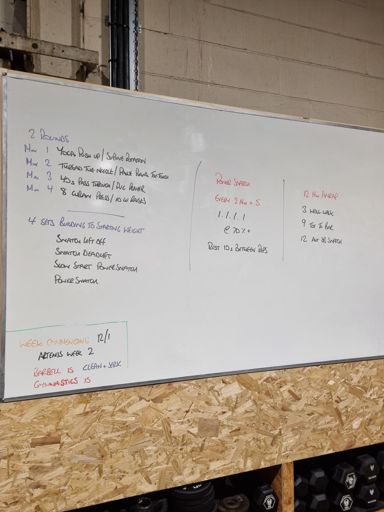 2 ROUNDS
MIN 1 YOGA PUSH UP / SUPINE ROTATION
MIN 2 THREAD THE NEEDLE / PRONE
MIN 3 40s PASS THROUGH / PVC POWER
MIN 4 8 CUBAN PRESS / 10
4 SETS BUILDING TO STARTING WEIGHT
SNATCH LIFT OFF
SNATCH DEADLIFT
SLOW START POWER SNATCH
POWER SNATCH
WEEK COMMENCING 12/1
ARTEMIS WEEK 2
BARBELL IS CLEAN + JERK
GYMNASTICS IS
POWER SNATCH
EVERY 2 MIN x 5
1.1.1.1
@ 70%+
REST 10s BETWEEN REPS
12 MIN AMRAP
3 WALL WALK
9 TOE TO BAR
12 ALT DB SNATCH